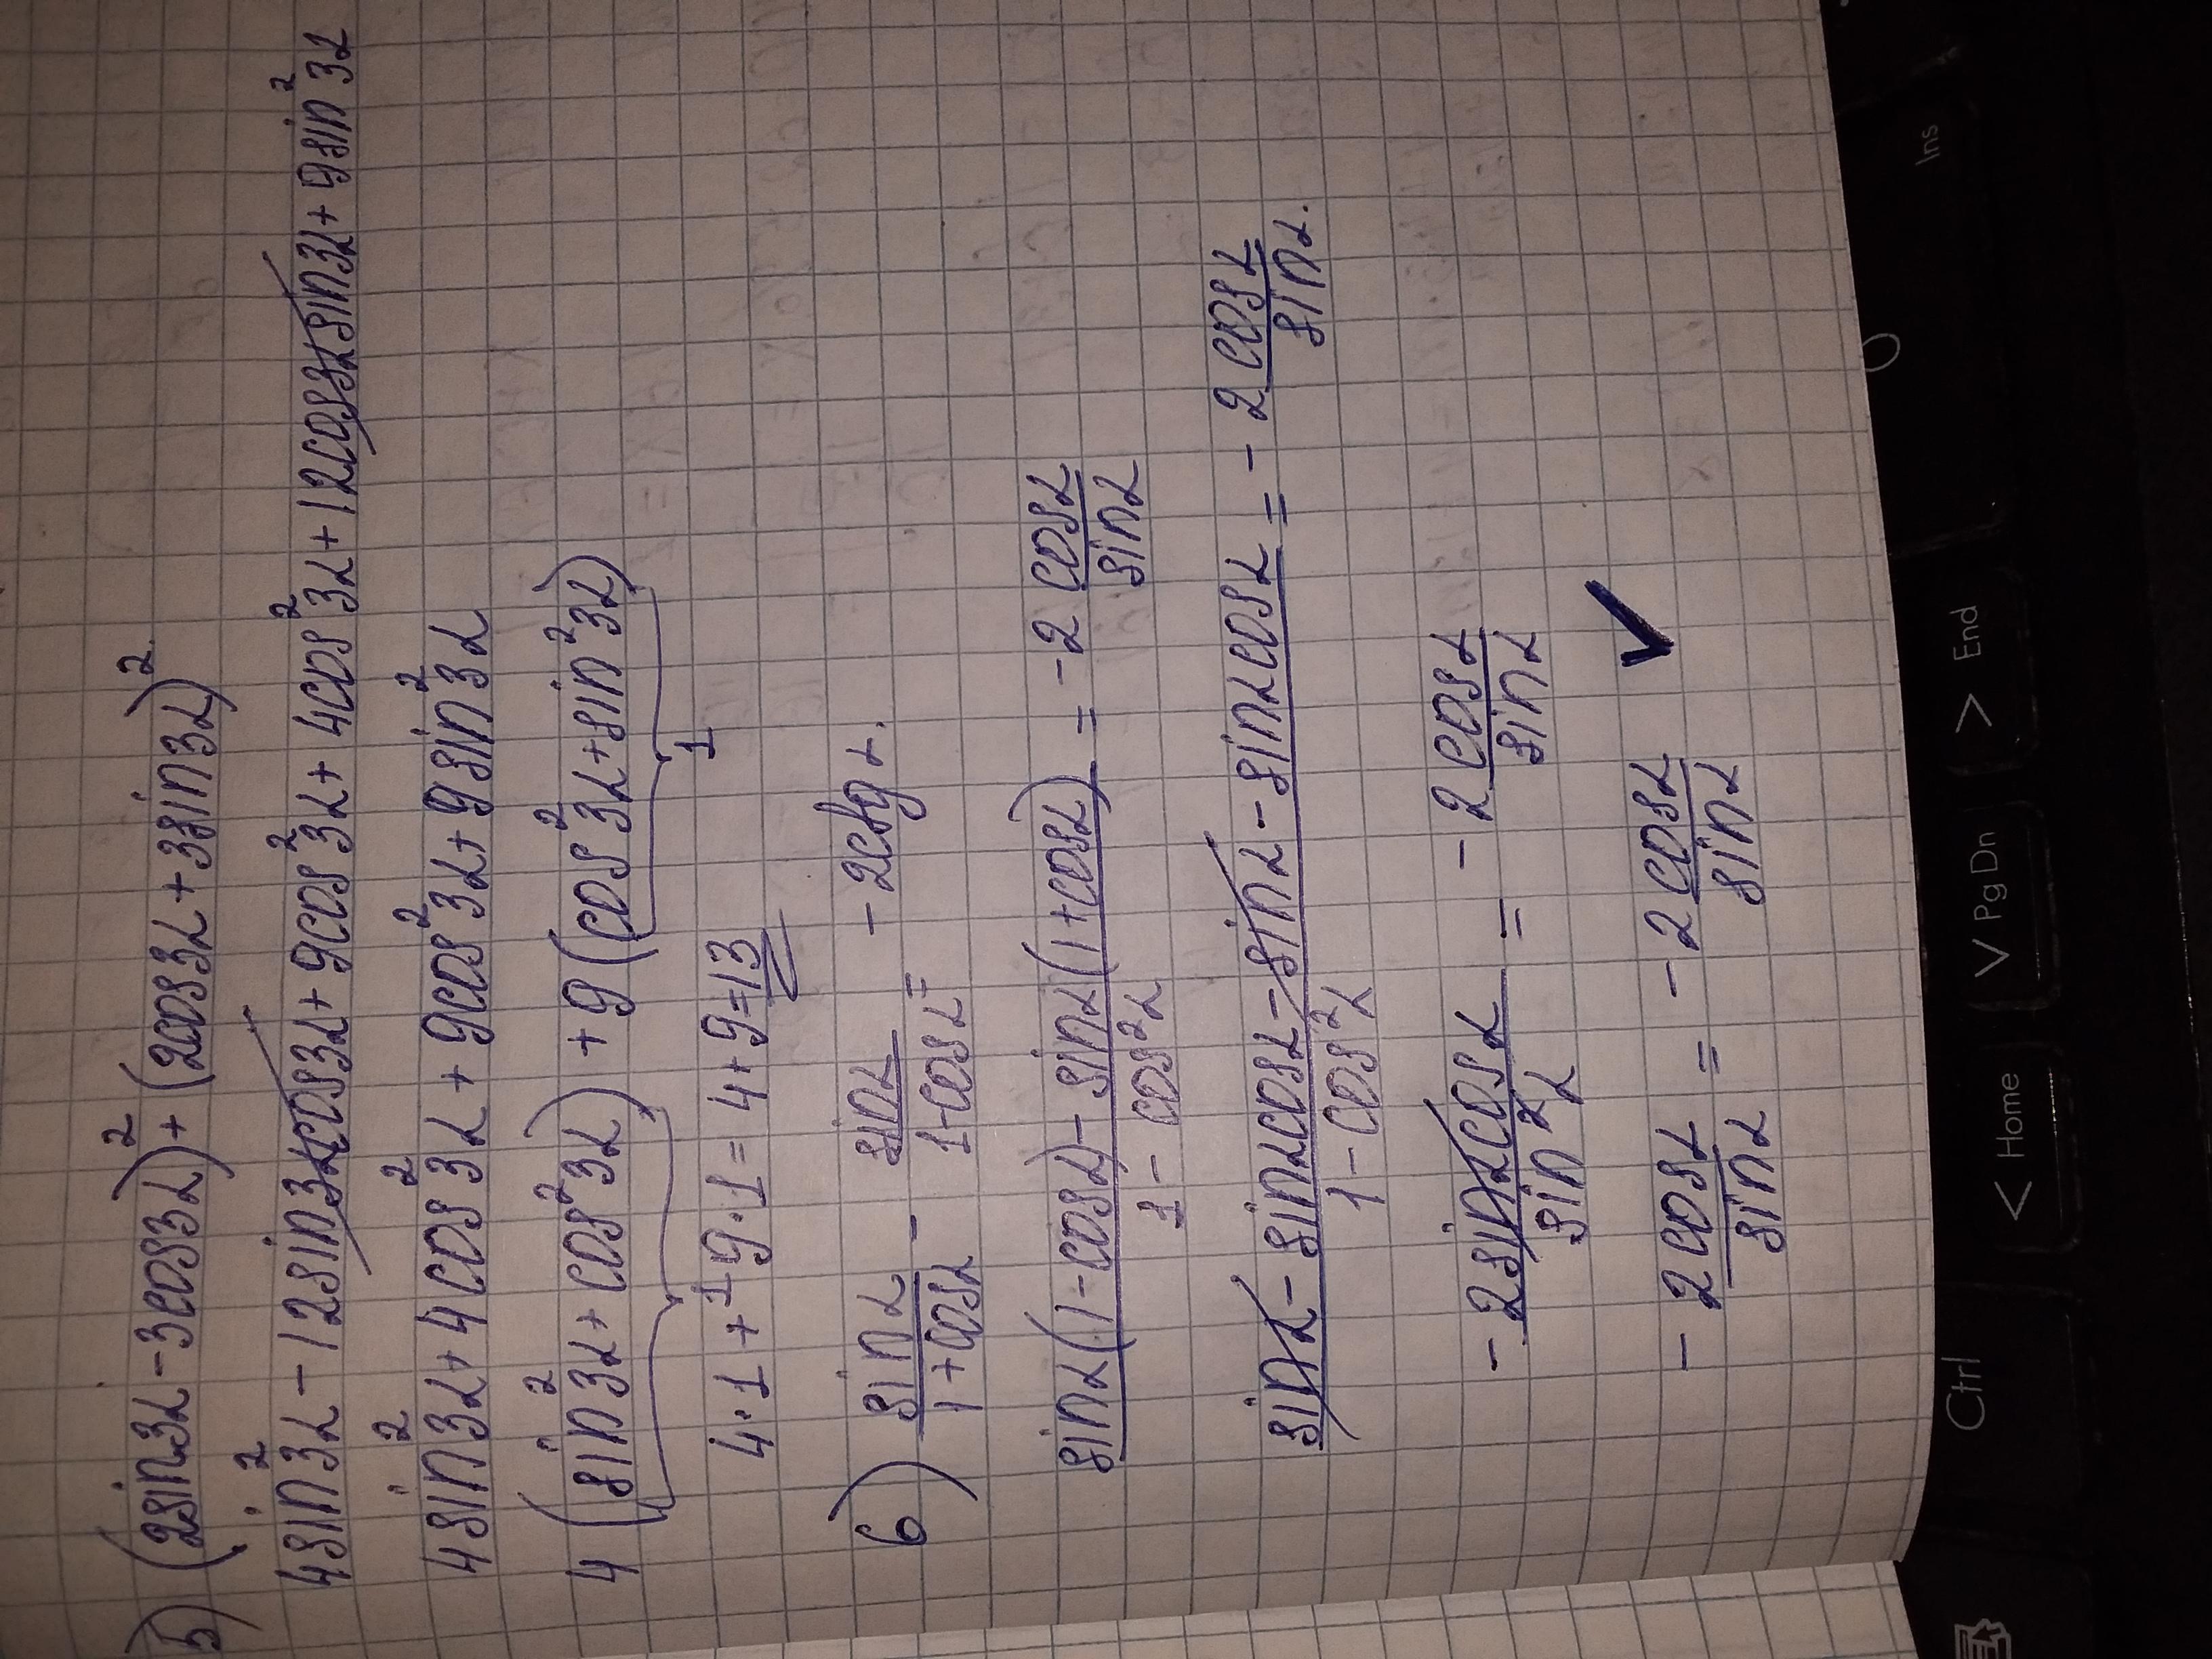 5) (2sin3α-3cos3α)²+(2cos3α+3sin3α)²
4sin²3α-12sin3αcos3α+9cos²3α+4cos²3α+12cos3αsin3α+9sin²3α
4sin²3α+4cos²3α+9cos²3α+9sin²3α
4(sin²3α+cos²3α)+9(cos²3α+sin²3α)
1 1
4·1+9·1=4+9=13
6) sinα/1+cosα - sinα/1-cosα = -2ctgα.
sinα(1-cosα)-sinα(1+cosα)/1-cos²α = -2 cosα/sinα
sinα-sinαcosα-sinα-sinαcosα/1-cos²α = -2 cosα/sinα.
- 2sinαcosα/sin²α = -2 cosα/sinα
- 2cosα/sinα = -2 cosα/sinα ✓
Ctrl
< Home
∨ PgDn
> End
0
Ins